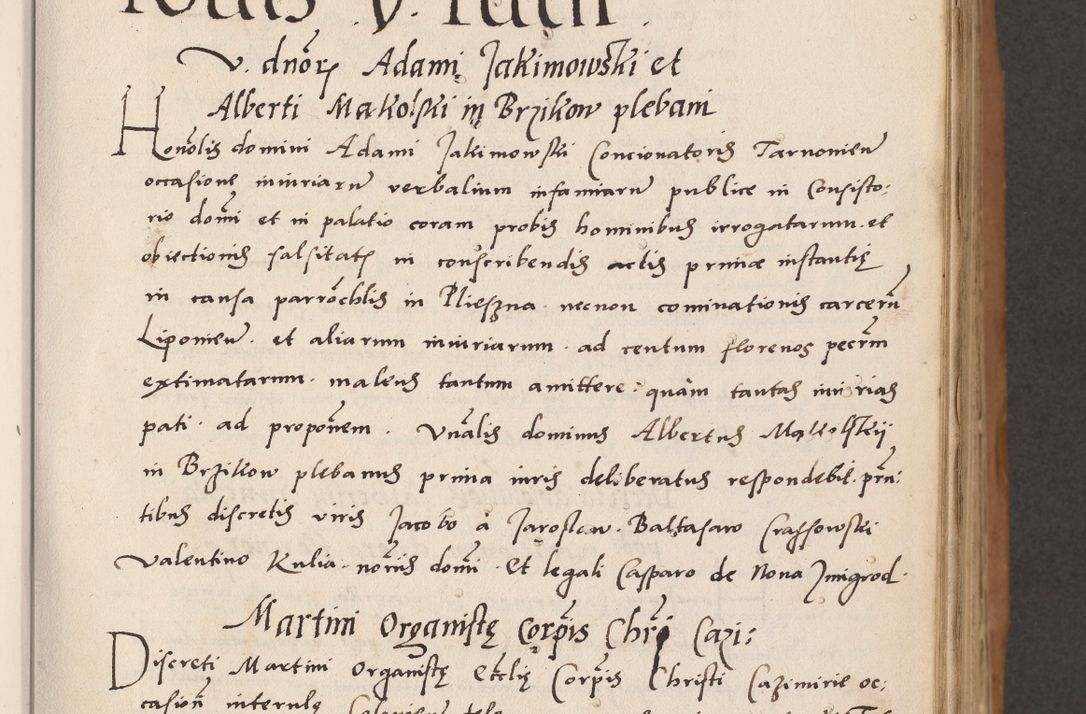 V. dnor Adami Jakimowski et
Alberti Makolski in Brzikow plebani
Honolis domini Adami Jakimowski Concionatoris Tarnonien
occasione iniuriarum verbalium infamiarum publice in Consisto-
rio domi et in palatio coram probis hominibus irrogatarum. et
obiectionis falsitatis in conscribendis actis primae instantię
in causa parrochlis in Plieszna. necnon cominationis carcerum
Liponien. et aliarum iniuriarum. ad centum florenos pecrm
extimatarum. malens tantum amittere: quam tantas iniurias
pati. ad proponem. Vnalis dominus Albertus Makolskij
in Brzikow plebanus prima iuris deliberatus respondebit. prn-
tibus discretis viris Jacobo a Jaroslaw. Baltasaro Crassowski
Valentino Kulia. noriis domi. Et legali Casparo de Nona Zmigrod.
Martini Organistę Corpis Chri Cazi:
Discreti Martini Organistę Ecclię Corpis Christi Cazimirie oc-
casion